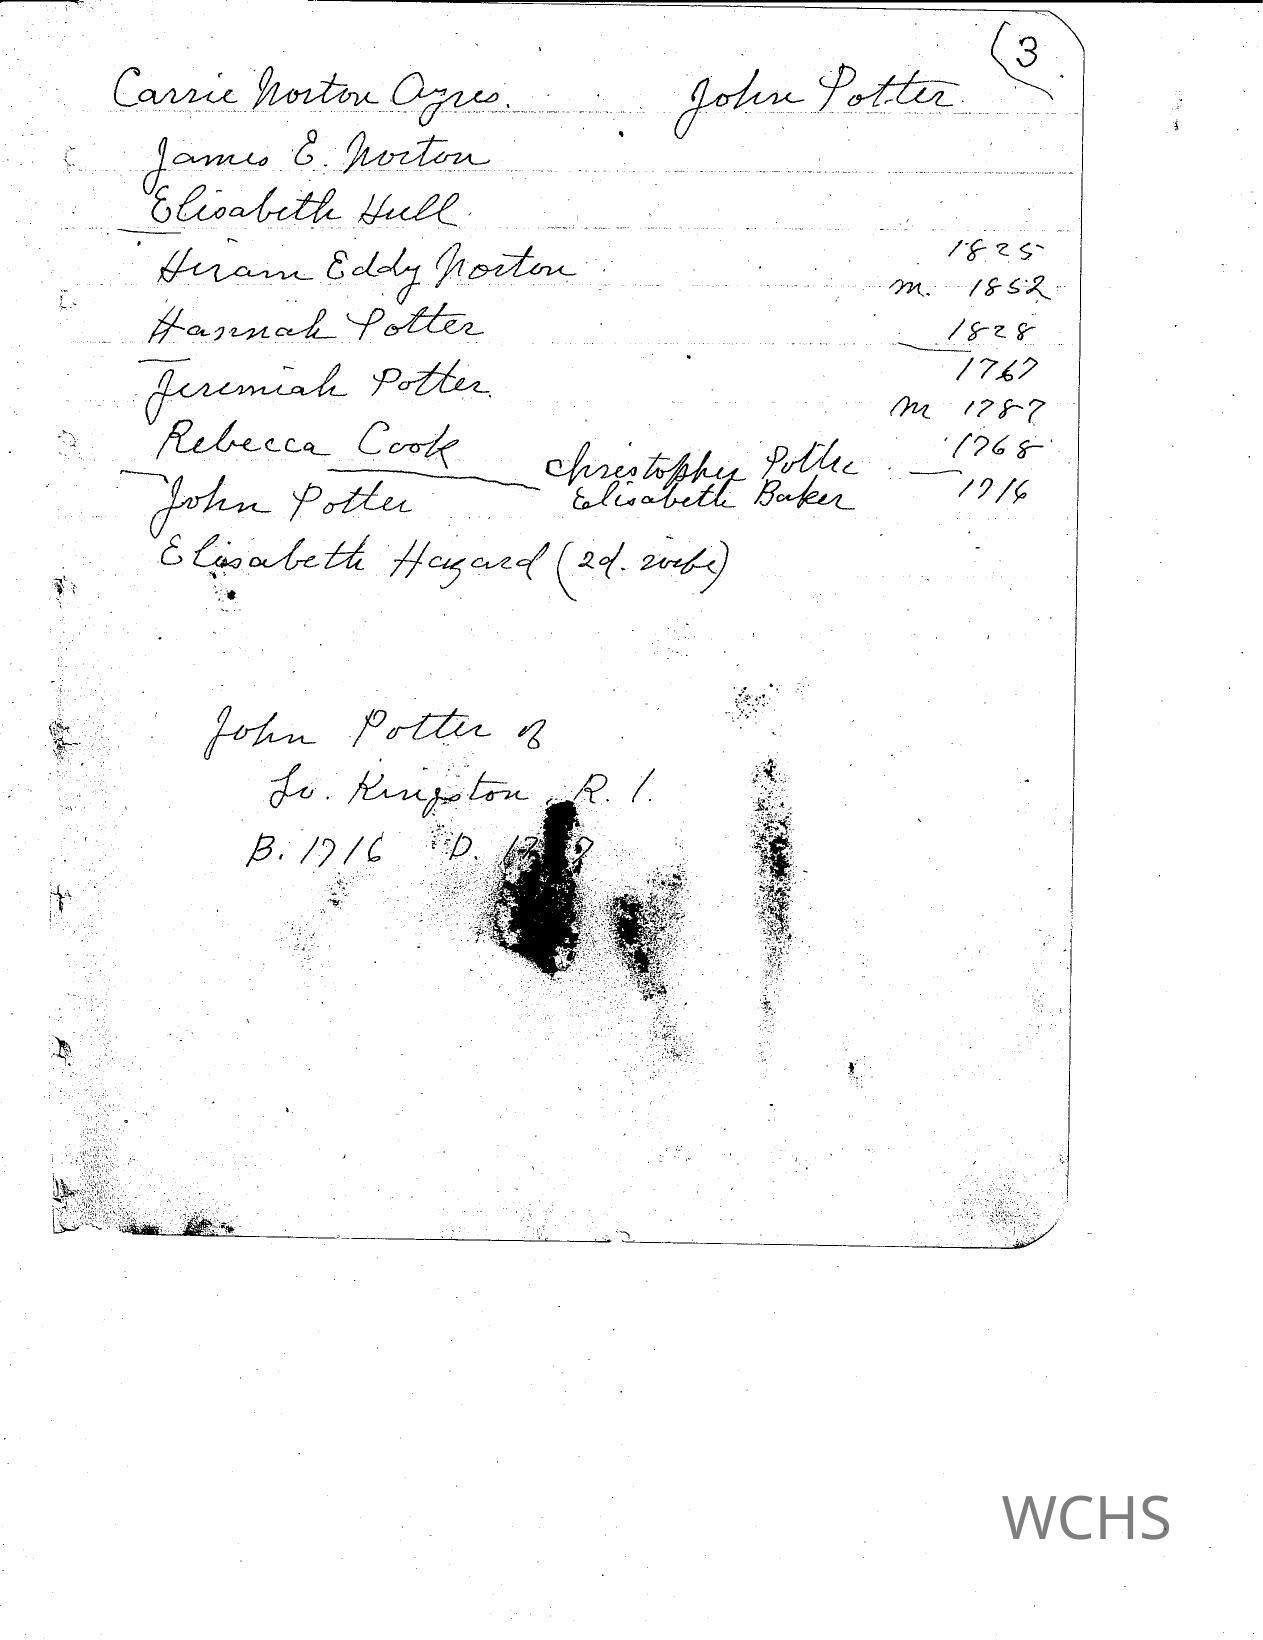 3
Carrie Norton Ayres. John Potter.
James E. Norton
Elisabeth Hull.
Hiram Eddy Norton 1825
m. 1852
Hannah Potter 1828
Jeremiah Potter. 1767
m 1787
Rebecca Cook 1768
Christopher Potter
John Potter 1716
Elisabeth Baker
Elisabeth Hazard (2d. wife)
John Potter of
So. Kingston R. I.
B. 1716 D.
WCHS